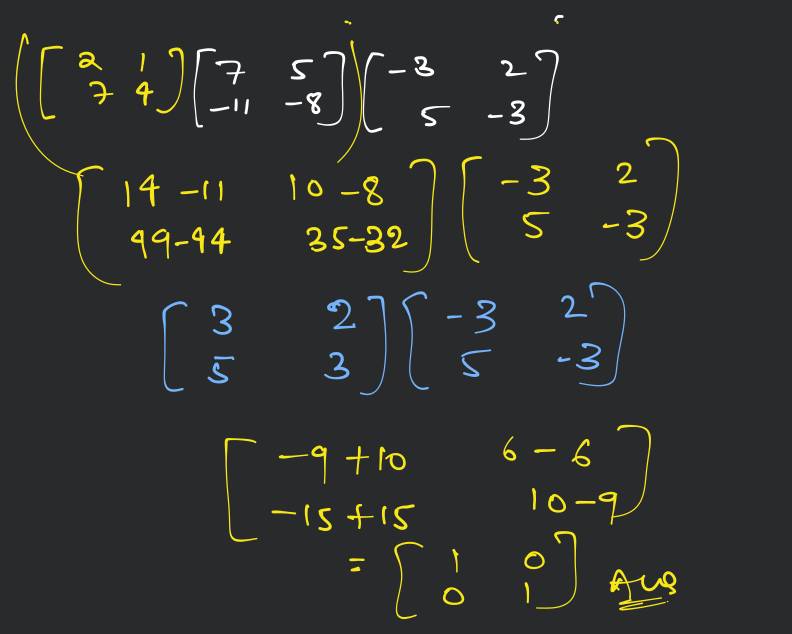 ([2 1 7 4][7 5 -11 -8])[-3 2 5 -3]
[14 -11 10 -8
49-44 35-32] [-3 2 5 -3]
[3 2
5 3] [-3 2 5 -3]
[-9 +10 6 - 6
-15 +15 10 -9]
= [1 0
0 1] Ans